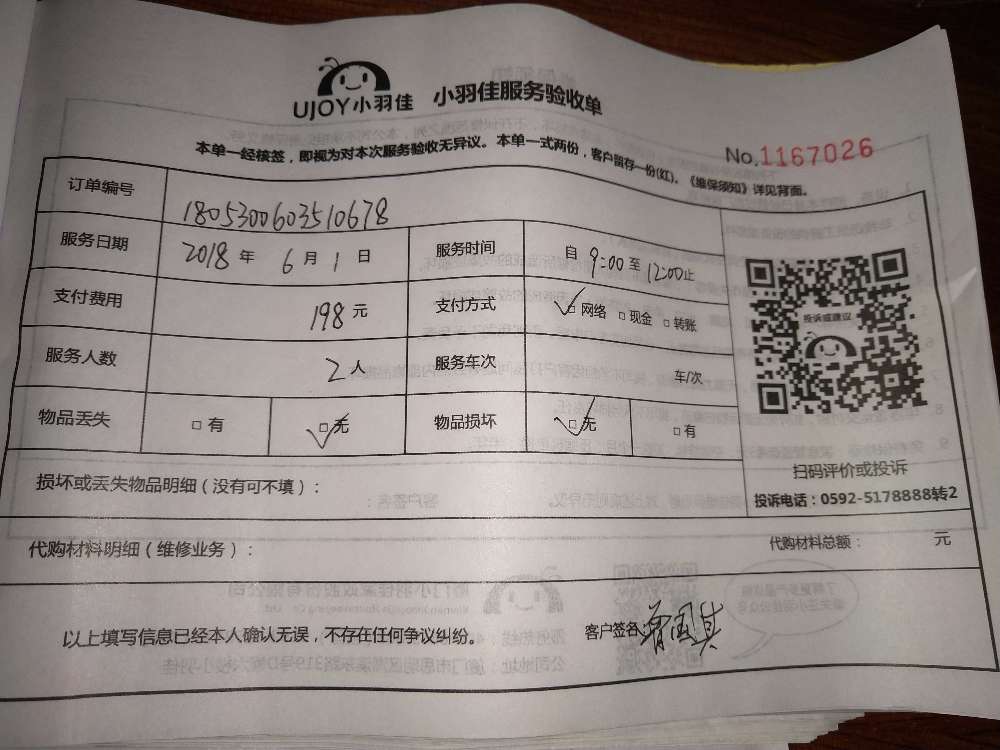 UJOY小羽佳 小羽佳服务验收单
本单一经核签，即视为对本次服务验收无异议。本单一式两份，客户留存一份(红)。《维保须知》详见背面。
No.1167026
订单编号 1805300603510678
服务日期 2018 年 6 月 1 日 服务时间 自 9:00 至 12:00止
支付费用 198 元 支付方式 ☑网络 □现金 □转账
服务人数 2人 服务车次 车/次
物品丢失 □有 ☑无 物品损坏 ☑无 □有
投诉或建议
扫码评价或投诉
投诉电话：0592-5178888转2
损坏或丢失物品明细（没有可不填）：
代购材料明细（维修业务）： 代购材料总额： 元
以上填写信息已经本人确认无误，不存在任何争议纠纷。 客户签名